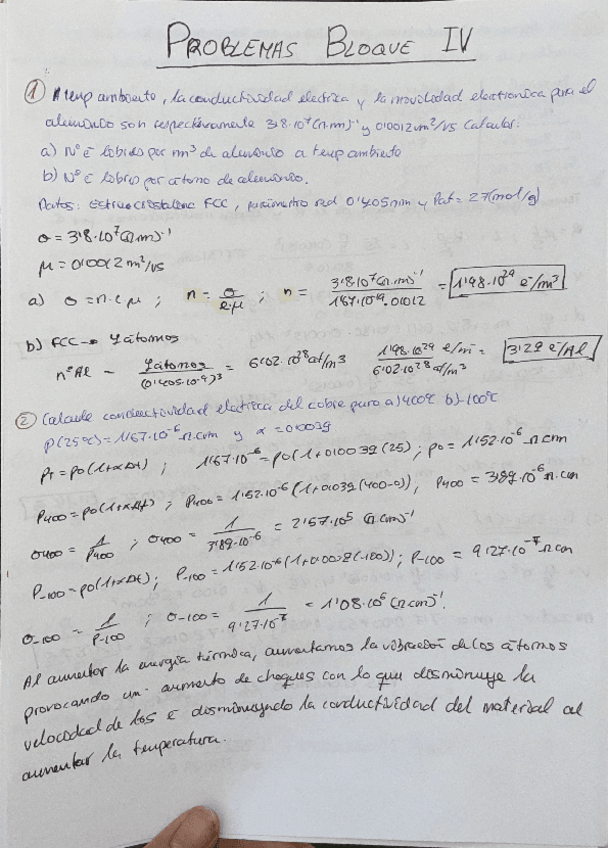 PROBLEMAS BLOQUE IV
① A temp ambiente, la conductividad electrica y la movilidad electronica para el
aluminio son respectivamente 3'8·10⁷(Ω·m)⁻¹ y 0'0012m²/vs Calcular:
a) Nº ē libres por m³ de aluminio a temp ambiente
b) Nº ē libres por átomo de aluminio.
Datos: Estruc cristalina FCC, parámetro red 0'405nm y Pat = 27(mol/g)
σ = 3'8·10⁷(Ω·m)⁻¹
μ = 0'0012 m²/vs
a) σ = n·e·μ ; n = σ/e·μ ; n = 3'8·10⁷(Ω·m)⁻¹/1'67·10⁻¹⁹·0'0012 = 1'98·10²⁹ ē/m³
b) FCC → 4 átomos
nº Al = 4 átomos/(0'405·10⁻⁹)³ = 6'02·10²⁸at/m³ 1'98·10²⁹ ē/m³/6'02·10²⁸ at/m³ = 3'29 ē/Al
② Calcule conductividad electrica del cobre puro a) 400ºC b) -100ºC
ρ(25ºC) = 1'67·10⁻⁶ Ω·cm y α = 0'0039
ρT = ρ0(1+αΔt) ; 1'67·10⁻⁶ = ρ0(1+0'0039(25) ; ρ0 = 1'52·10⁻⁶ Ω cm
ρ400 = ρ0(1+αΔt) ; ρ400 = 1'52·10⁻⁶(1+0'0039(400-0)) ; ρ400 = 3'89·10⁻⁶ Ω·cm
σ400 = 1/ρ400 ; σ400 = 1/3'89·10⁻⁶ = 2'57·10⁵ (Ω cm)⁻¹
ρ-100 = ρ0(1+αΔt) ; ρ-100 = 1'52·10⁻⁶(1+0'0039(-100)) ; ρ-100 = 9'27·10⁻⁷ Ω·cm
σ-100 = 1/ρ-100 ; σ-100 = 1/9'27·10⁻⁷ = 1'08·10⁶ (Ω cm)⁻¹.
Al aumentar la energía térmica, aumentamos la vibración de los átomos
provocando un aumento de choques con lo que disminuye la
velocidad de los ē disminuyendo la conductividad del material al
aumentar la temperatura.